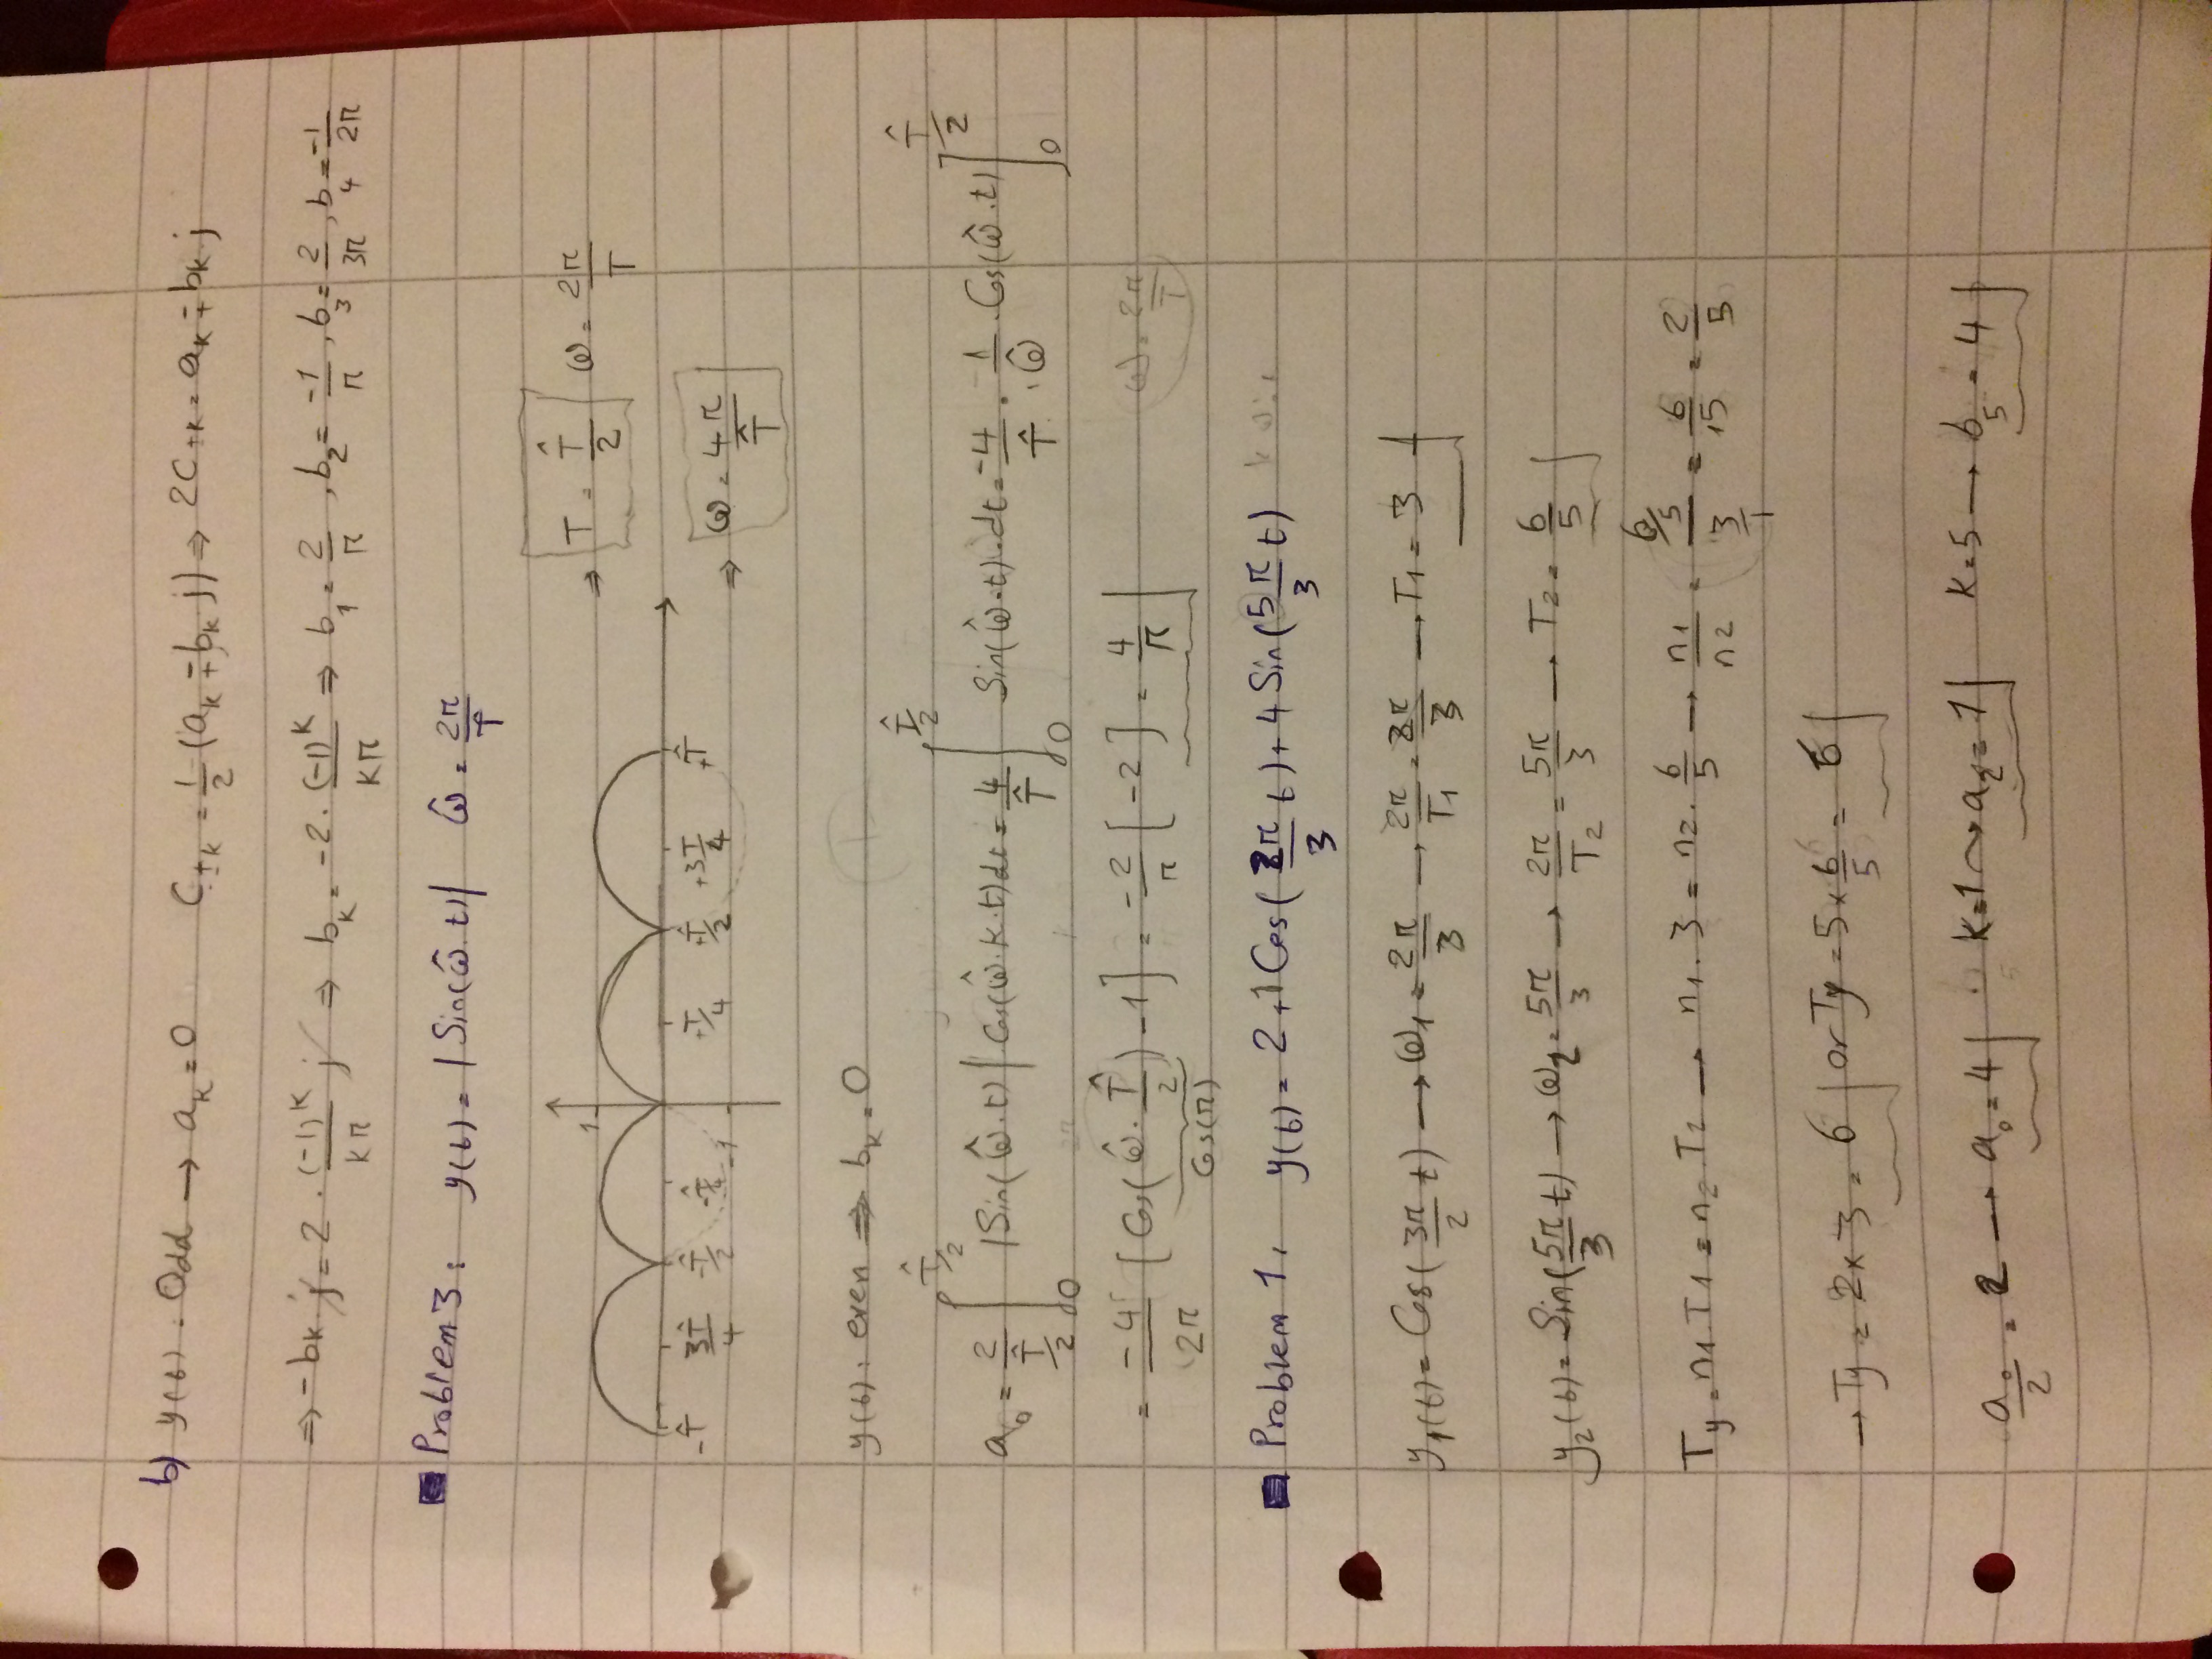 b) y(t) = Odd → a_k = 0    C_±k = 1/2 (a_k ∓ b_k j) ⇒ 2C_±k = a_k ∓ b_k j
⇒ -b_k j = 2 · (-1)^k/kπ j ⇒ b_k = -2 · (-1)^k/kπ ⇒ b_1 = 2/π , b_2 = -1/π , b_3 = 2/3π , b_4 = -1/2π
Problem 3: y(t) = |Sin(ω̂ · t)|    ω̂ = 2π/T̂
1
⇒ T = T̂/2    ω = 2π/T
-T̂    3T̂/4    -T̂/2    -T̂/4    -1    +T̂/4    +T̂/2    +3T̂/4    +T̂
⇒ ω = 4π/T̂
y(t): even ⇒ b_k = 0
a_0 = 2/(T̂/2) ∫_0^{T̂/2} |Sin(ω̂ · t)| Cos(ω̂ · k · t) dt = 4/T̂ ∫_0^{T̂/2} Sin(ω̂ · t) · dt = -4/T̂ · 1/ω̂ · Cos(ω̂ · t) ]_0^{T̂/2}
= -4/2π [Cos(ω̂ · T̂/2) - 1] = -2/π [-2] = 4/π    ω = 2π/T
Cos(π)
Problem 1: y(t) = 2 + 1 Cos(2π/3 t) + 4 Sin(5π/3 t)
y_1(t) = Cos(3π/2 t) → ω_1 = 2π/3 → 2π/T_1 = 2π/3 → T_1 = 3
y_2(t) = Sin(5π/3 t) → ω_2 = 5π/3 → 2π/T_2 = 5π/3 → T_2 = 6/5
T_y = n_1 · T_1 = n_2 T_2 → n_1 · 3 = n_2 · 6/5 → n_1/n_2 = (6/5)/(3/1) = 6/15 = 2/5
→ T_y = 2 × 3 = 6 or T_y = 5 × 6/5 = 6
a_0/2 = 2 → a_0 = 4    k=1 → a_2 = 1    k=5 → b_5 = 4